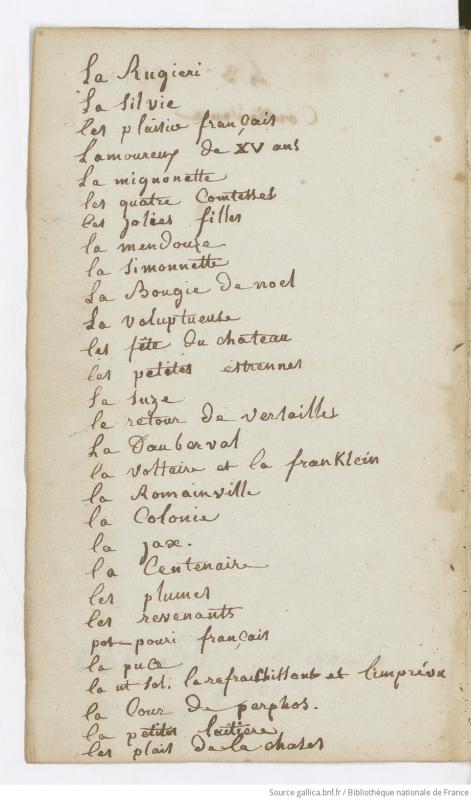 La Rugieri
La Silvie
les plaisir français
Lamoureux de XV ans
La mignonette
les quatre Comtesses
les jolies filles
la mendouze
la Simonnette
La Bougie de noel
La voluptueuse
les fête du chateau
les petites estrennes
La Suze
le retour de versailles
La Dauberval
la voltaire et la franklein
la Romainville
la Colonie
la jaxe.
la Centenaire
les plumes
les revenants
pot-pouri français
la puce
la ut sol. la rafraichissant et l'imprévu
la Cour de perphos.
la petites laitiere
les plais de la chases
Source gallica.bnf.fr / Bibliothèque nationale de France